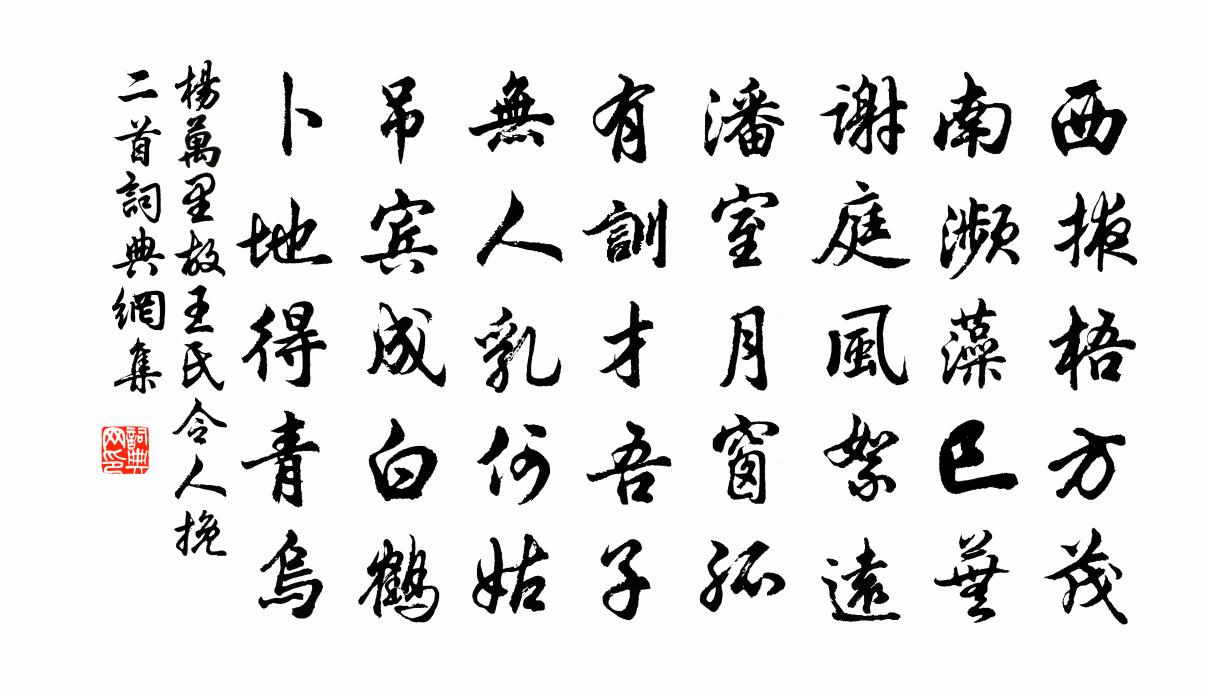 西掖梧方茂
南瀕藻已蕪
謝庭風絮遠
潘室月窗孤
有訓才吾子
無人乳何姑
吊賓成白鶴
卜地得青烏
楊萬里故王氏令人挽
二首詞典網集
詞典網印